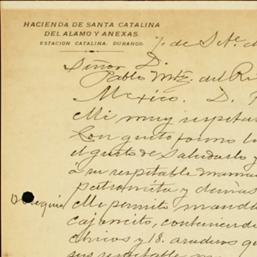 HACIENDA DE SANTA CATALINA
DEL ALAMO Y ANEXAS.
ESTACION CATALINA: DURANGO.
de
Señor D.
Pablo Mtz. del R
Mexico. D.
Mi muy respetu
Con gusto tomo la
el gusto de saludarlo y
a su respetable mamá
patroncita y demas
Me permito manda
cajoncito, conteniend
chicos y 18.
sus respetable